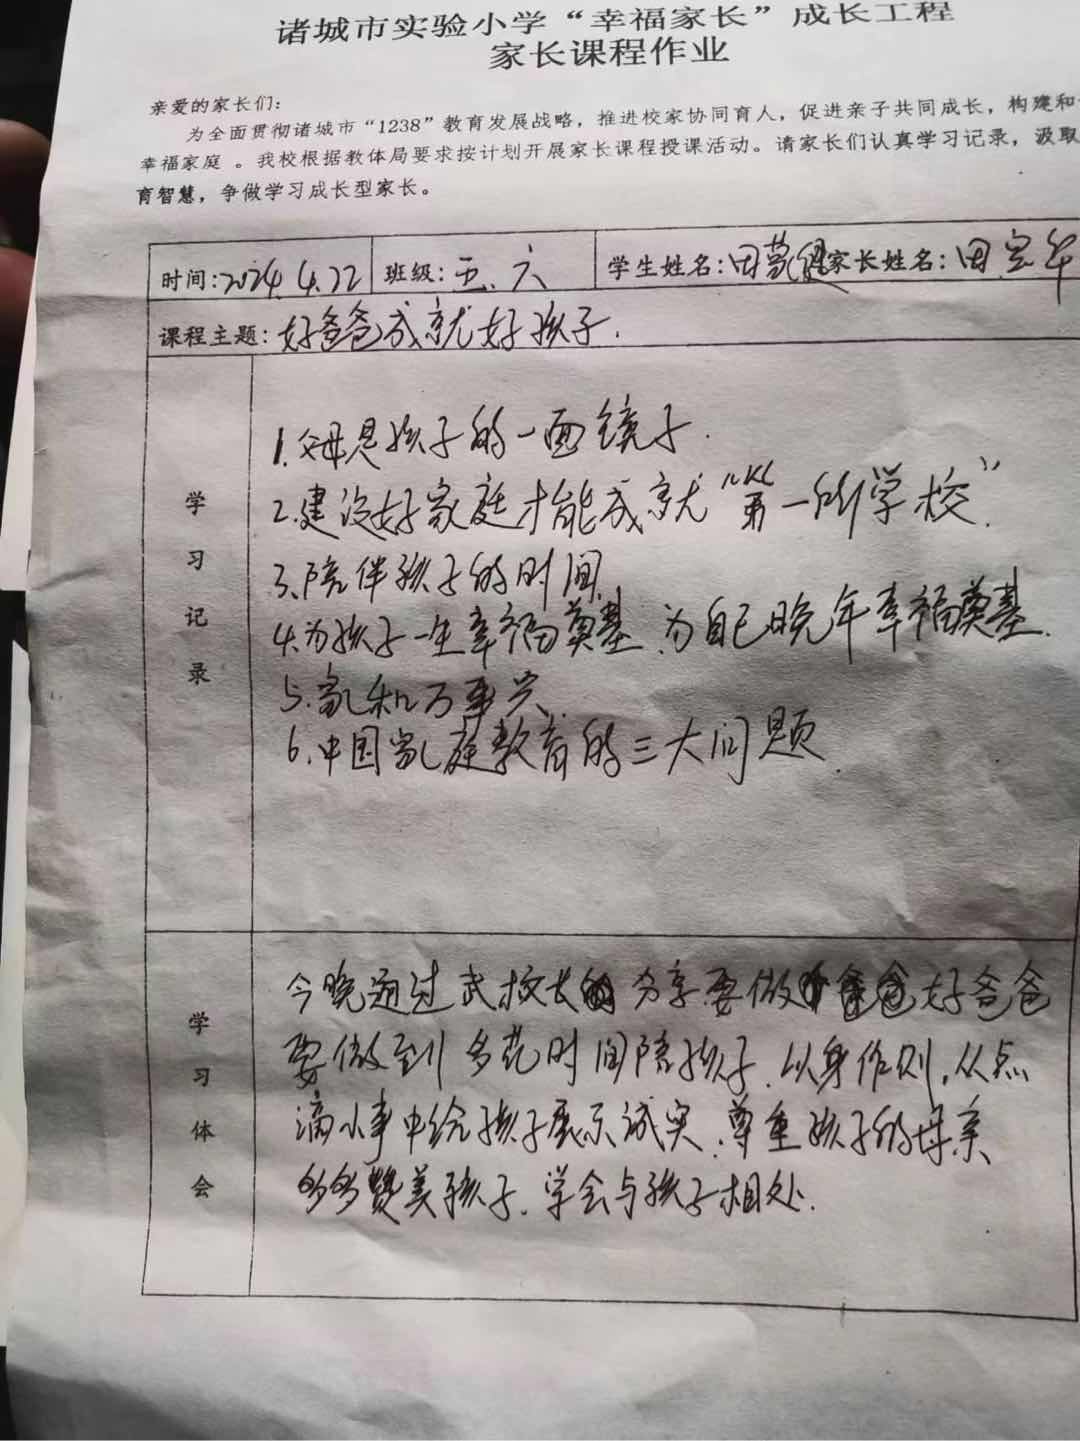 诸城市实验小学“幸福家长”成长工程
家长课程作业
亲爱的家长们：
为全面贯彻诸城市“1238”教育发展战略，推进校家协同育人，促进亲子共同成长，构建和
幸福家庭 。我校根据教体局要求按计划开展家长课程授课活动。请家长们认真学习记录，汲取
育智慧，争做学习成长型家长。
时间：2024.4.22 班级：五.六 学生姓名：田 家长姓名：田
课程主题：好爸爸成就好孩子.
学习记录
1.父母是孩子的一面镜子.
2.建设好家庭才能成就“第一所学校”.
3.陪伴孩子的时间.
4.为孩子一生幸福奠基.为自己晚年幸福奠基.
5.家和万事兴.
6.中国家庭教育的三大问题.
学习体会
今晚通过武校长的分享要做好爸爸
要做到多花时间陪孩子.以身作则,从点
滴小事中给孩子展示诚实.尊重孩子的母亲
多多赞美孩子.学会与孩子相处.